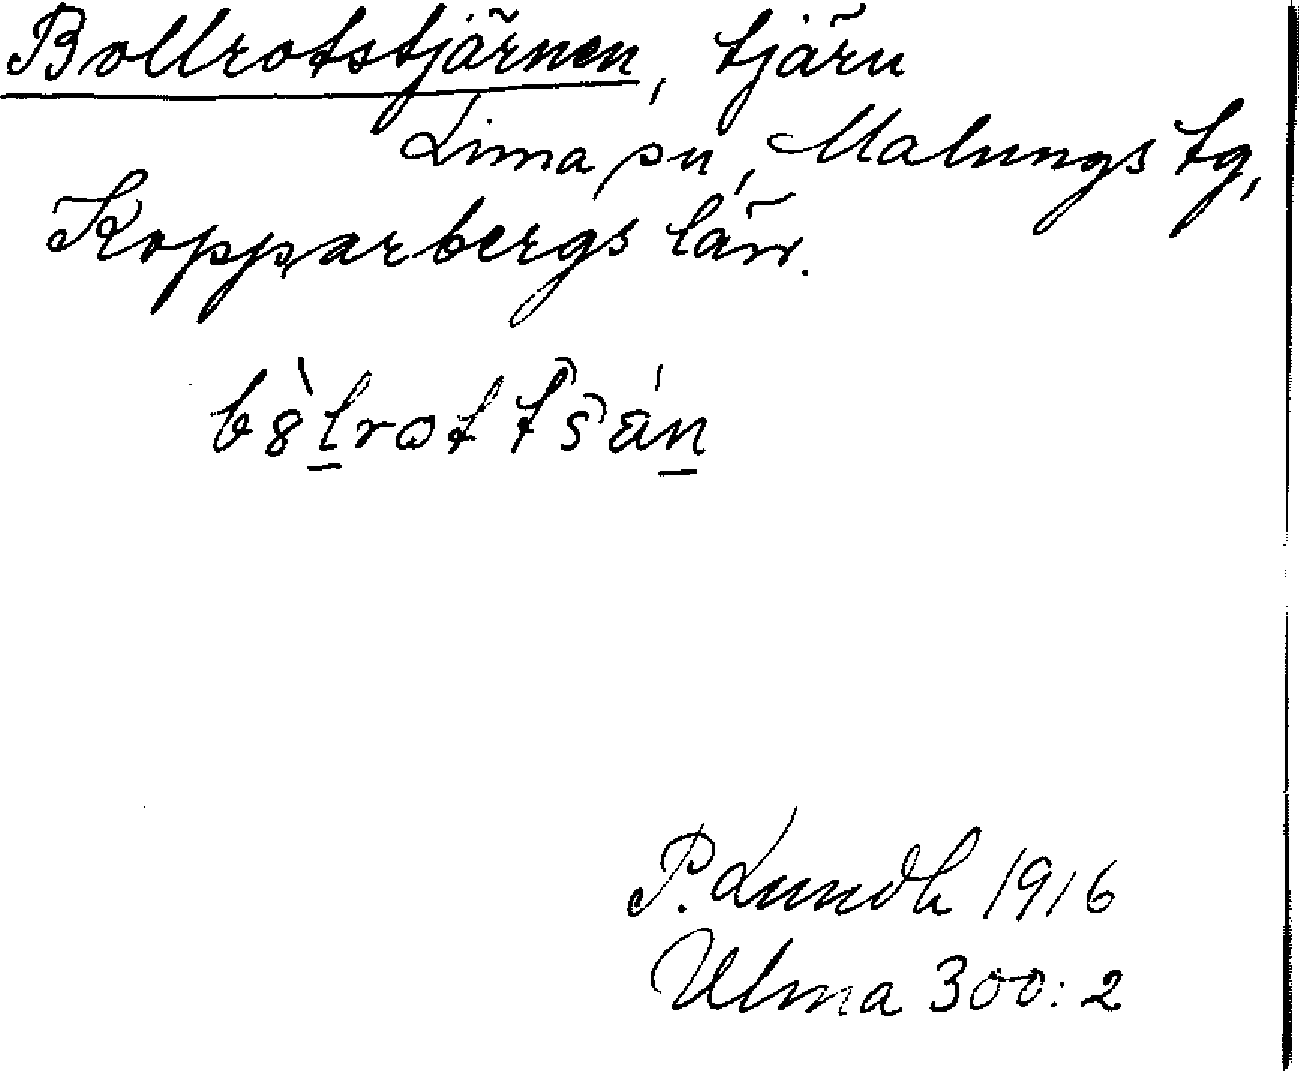 Bollrotstjärnen, tjärn
Lima sn, Malungs tg,
Kopparbergs län.
P. Lundh 1916
Ulma 300:2